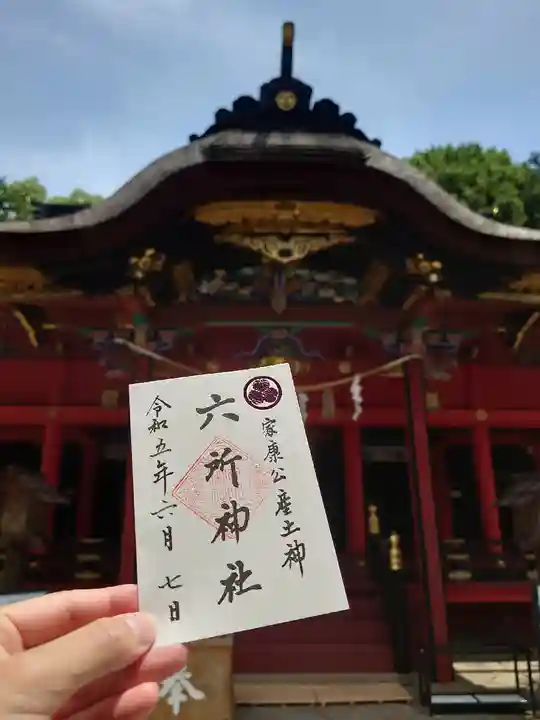 家康公産土神
六所神社
令和五年六月七日
奉